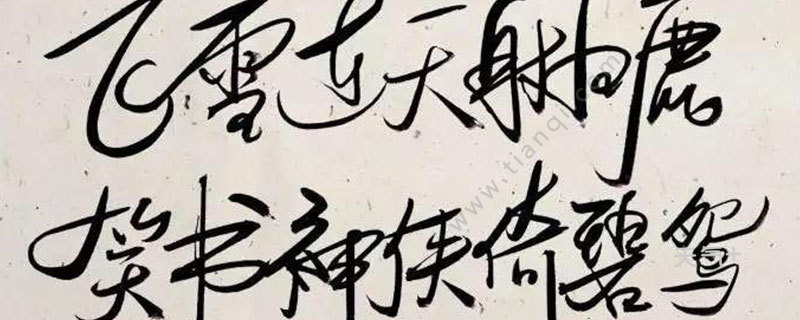 飞雪连天射白鹿
笑书神侠倚碧鸳
www.tianqi.com